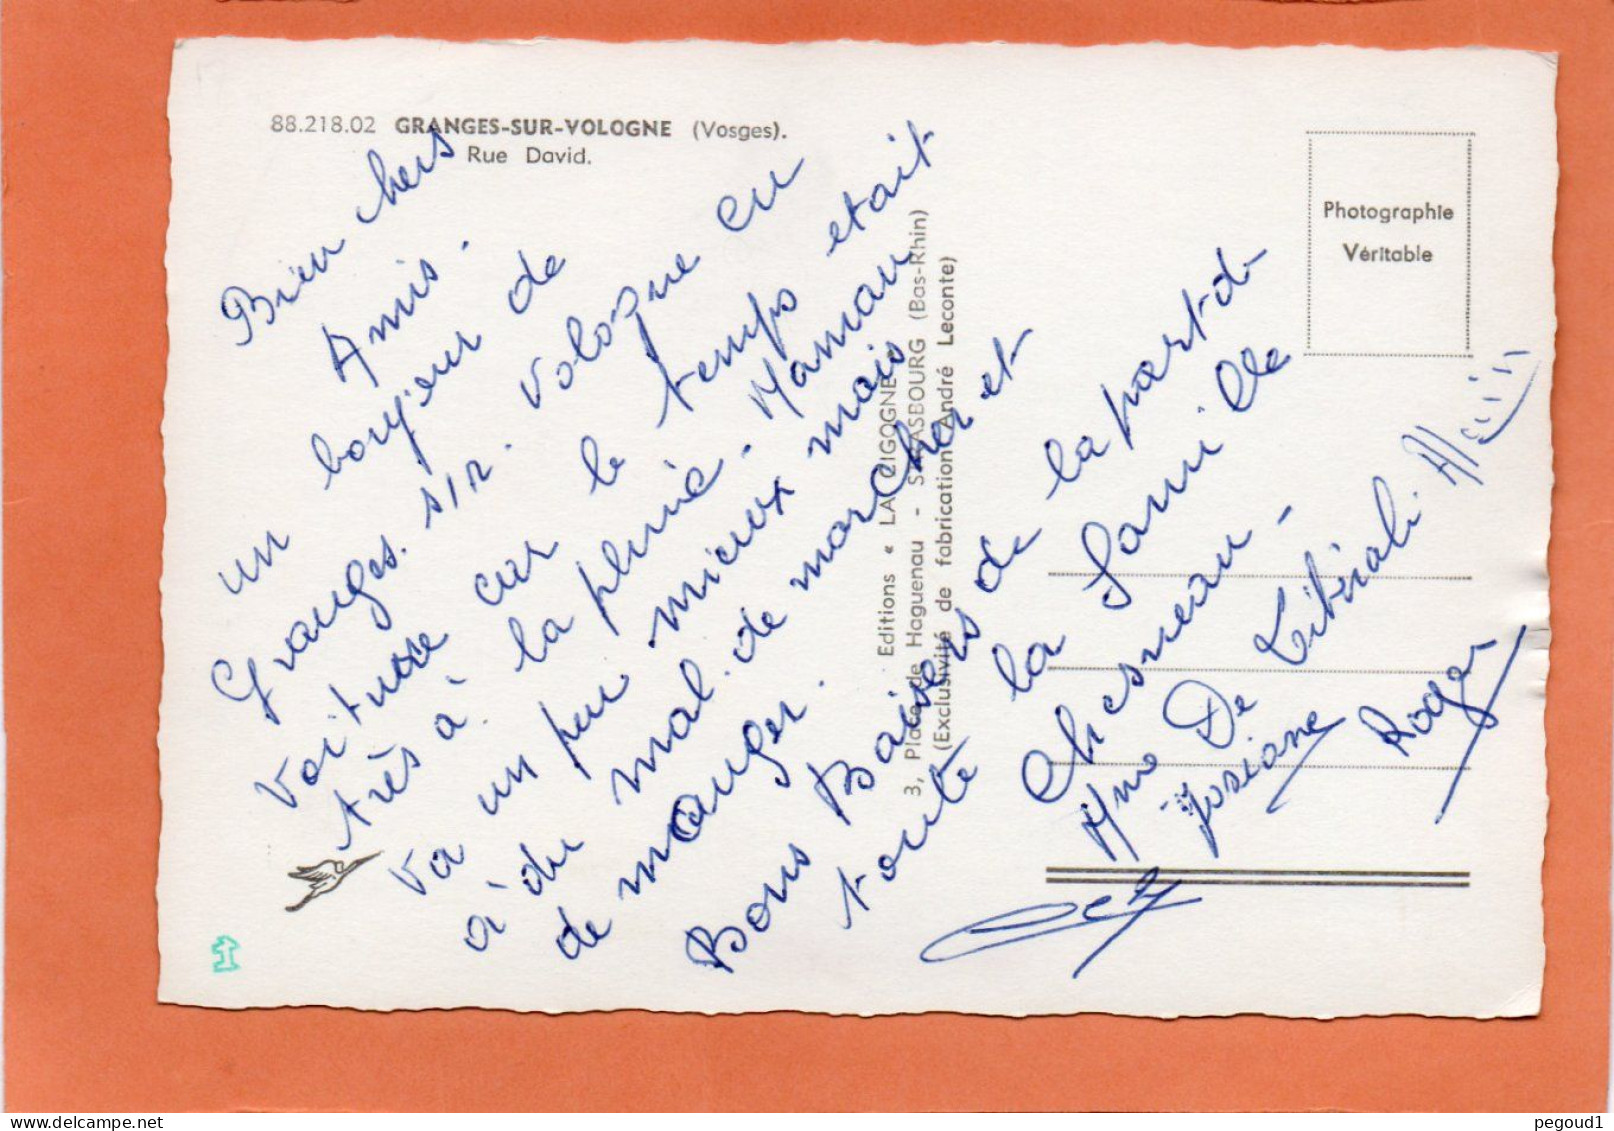 88.218.02 GRANGES-SUR-VOLOGNE (Vosges).
Rue David.
Photographie
Véritable
Editions « LA CIGOGNE »
3, Place de Haguenau - STRASBOURG (Bas-Rhin)
(Exclusivité de fabrication André Leconte)
Bien chers
Amis.
un bonjour de
Granges. s/r. Vologne en
voiture car le temps était
très à la pluie. Maman
va un peu mieux mais
a du mal de marcher et
de manger.
Bons Baisers de la part de
toute la famille
Chesneau -
Mme De Liberali. Alain
Josiane Roger
pegoud1